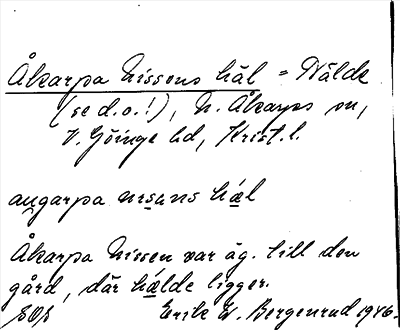 Åkarpa Nissens häl = Nälde
(se d.o.!), N. Åkarps sn,
V. Göinge hd, Krist. l.
aŋgarpa nisans hæl
Åkarpa Nissen var äg. till den
gård, där hælde ligger.
Erik W. Bergenrud 1946.